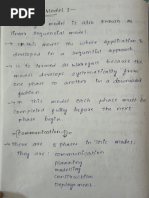 Model :-
model is also known as
linear sequential model.
In this model the whole application is
developed in a sequential approach.
It is termed as waterfall because the
model develops systematically from
one phase to another in a downward
fashion.
In this model each phase must be
completed fully before the next
phase begin.
Communication
There are 5 phase in this model.
They are communication
planning
modeling
construction
Deployement